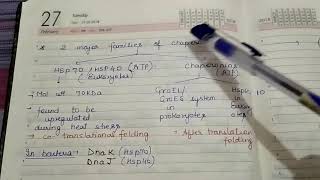 27
Tuesday
February
2 major families of chaper
HSP70 / HSP40 (ATP)
(Eukaryotes)
Chaperonins
(ATP)
Mol wt 70kDa
found to be
upregulated
during heat stress
co-translational folding
GroEL/
GroES system
in
prokaryotes
Hsp60, 10
in
Euk
After translation
folding
In bacteria → DnaK (HSP70)
DnaJ (HSP40)